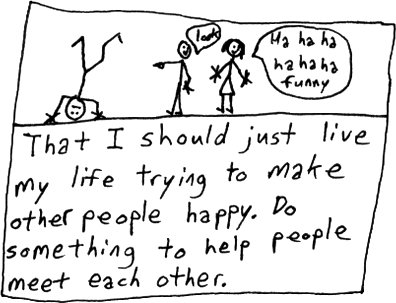 look
Ha ha ha
ha ha ha
funny
That I should just live
my life trying to make
other people happy. Do
something to help people
meet each other.